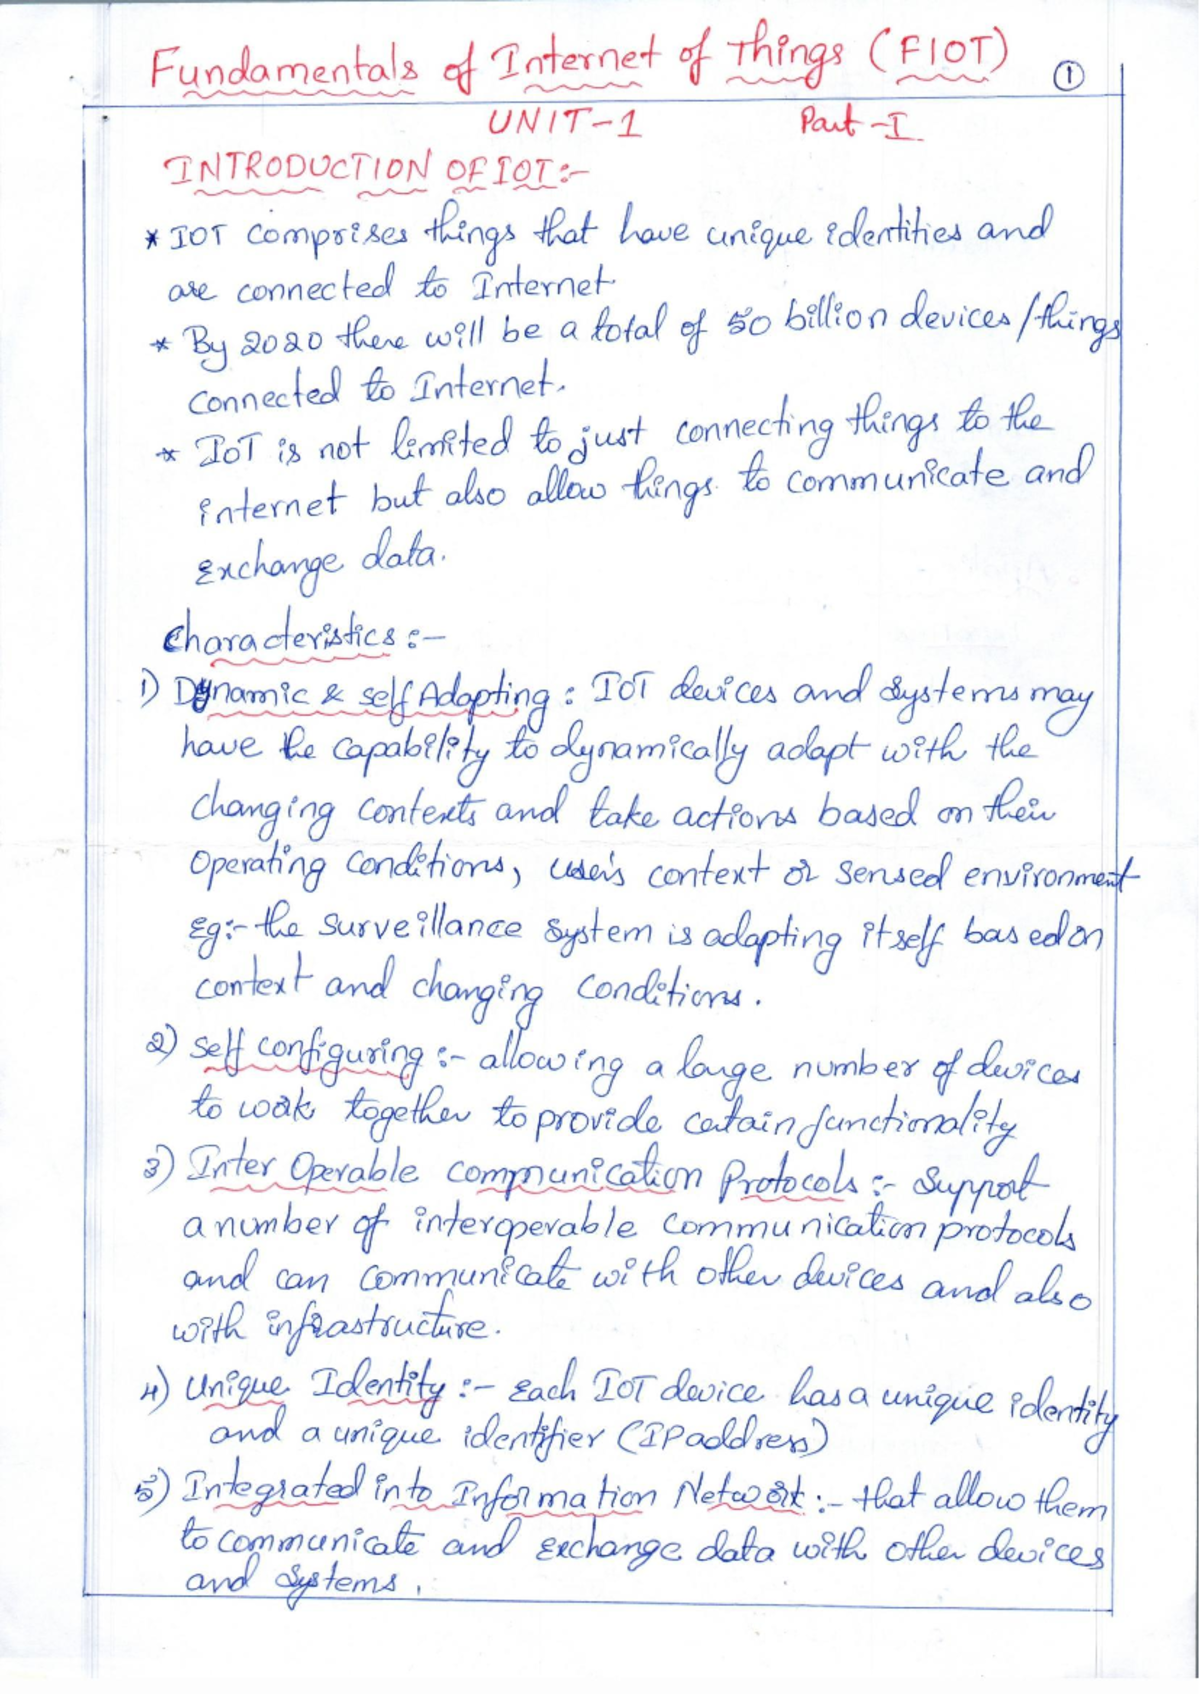 Fundamentals of Internet of Things (FIOT)
1
UNIT-1 Part-I
INTRODUCTION OF IOT:-
* IOT comprises things that have unique identities and
are connected to Internet.
* By 2020 there will be a total of 50 billion devices/things
connected to Internet.
* IoT is not limited to just connecting things to the
internet but also allow things to communicate and
exchange data.
Characteristics:-
1) Dynamic & self Adapting: IoT devices and systems may
have the capability to dynamically adapt with the
changing contexts and take actions based on their
operating conditions, user's context or sensed environment
Eg:- the surveillance system is adapting itself based on
context and changing conditions.
2) Self configuring:- allowing a large number of devices
to work together to provide certain functionality
3) Inter Operable communication Protocols:- Support
a number of interoperable communication protocols
and can communicate with other devices and also
with infrastructure.
4) Unique Identity:- Each IoT device has a unique identity
and a unique identifier (IP address)
5) Integrated into Information Network:- that allow them
to communicate and exchange data with other devices
and systems.